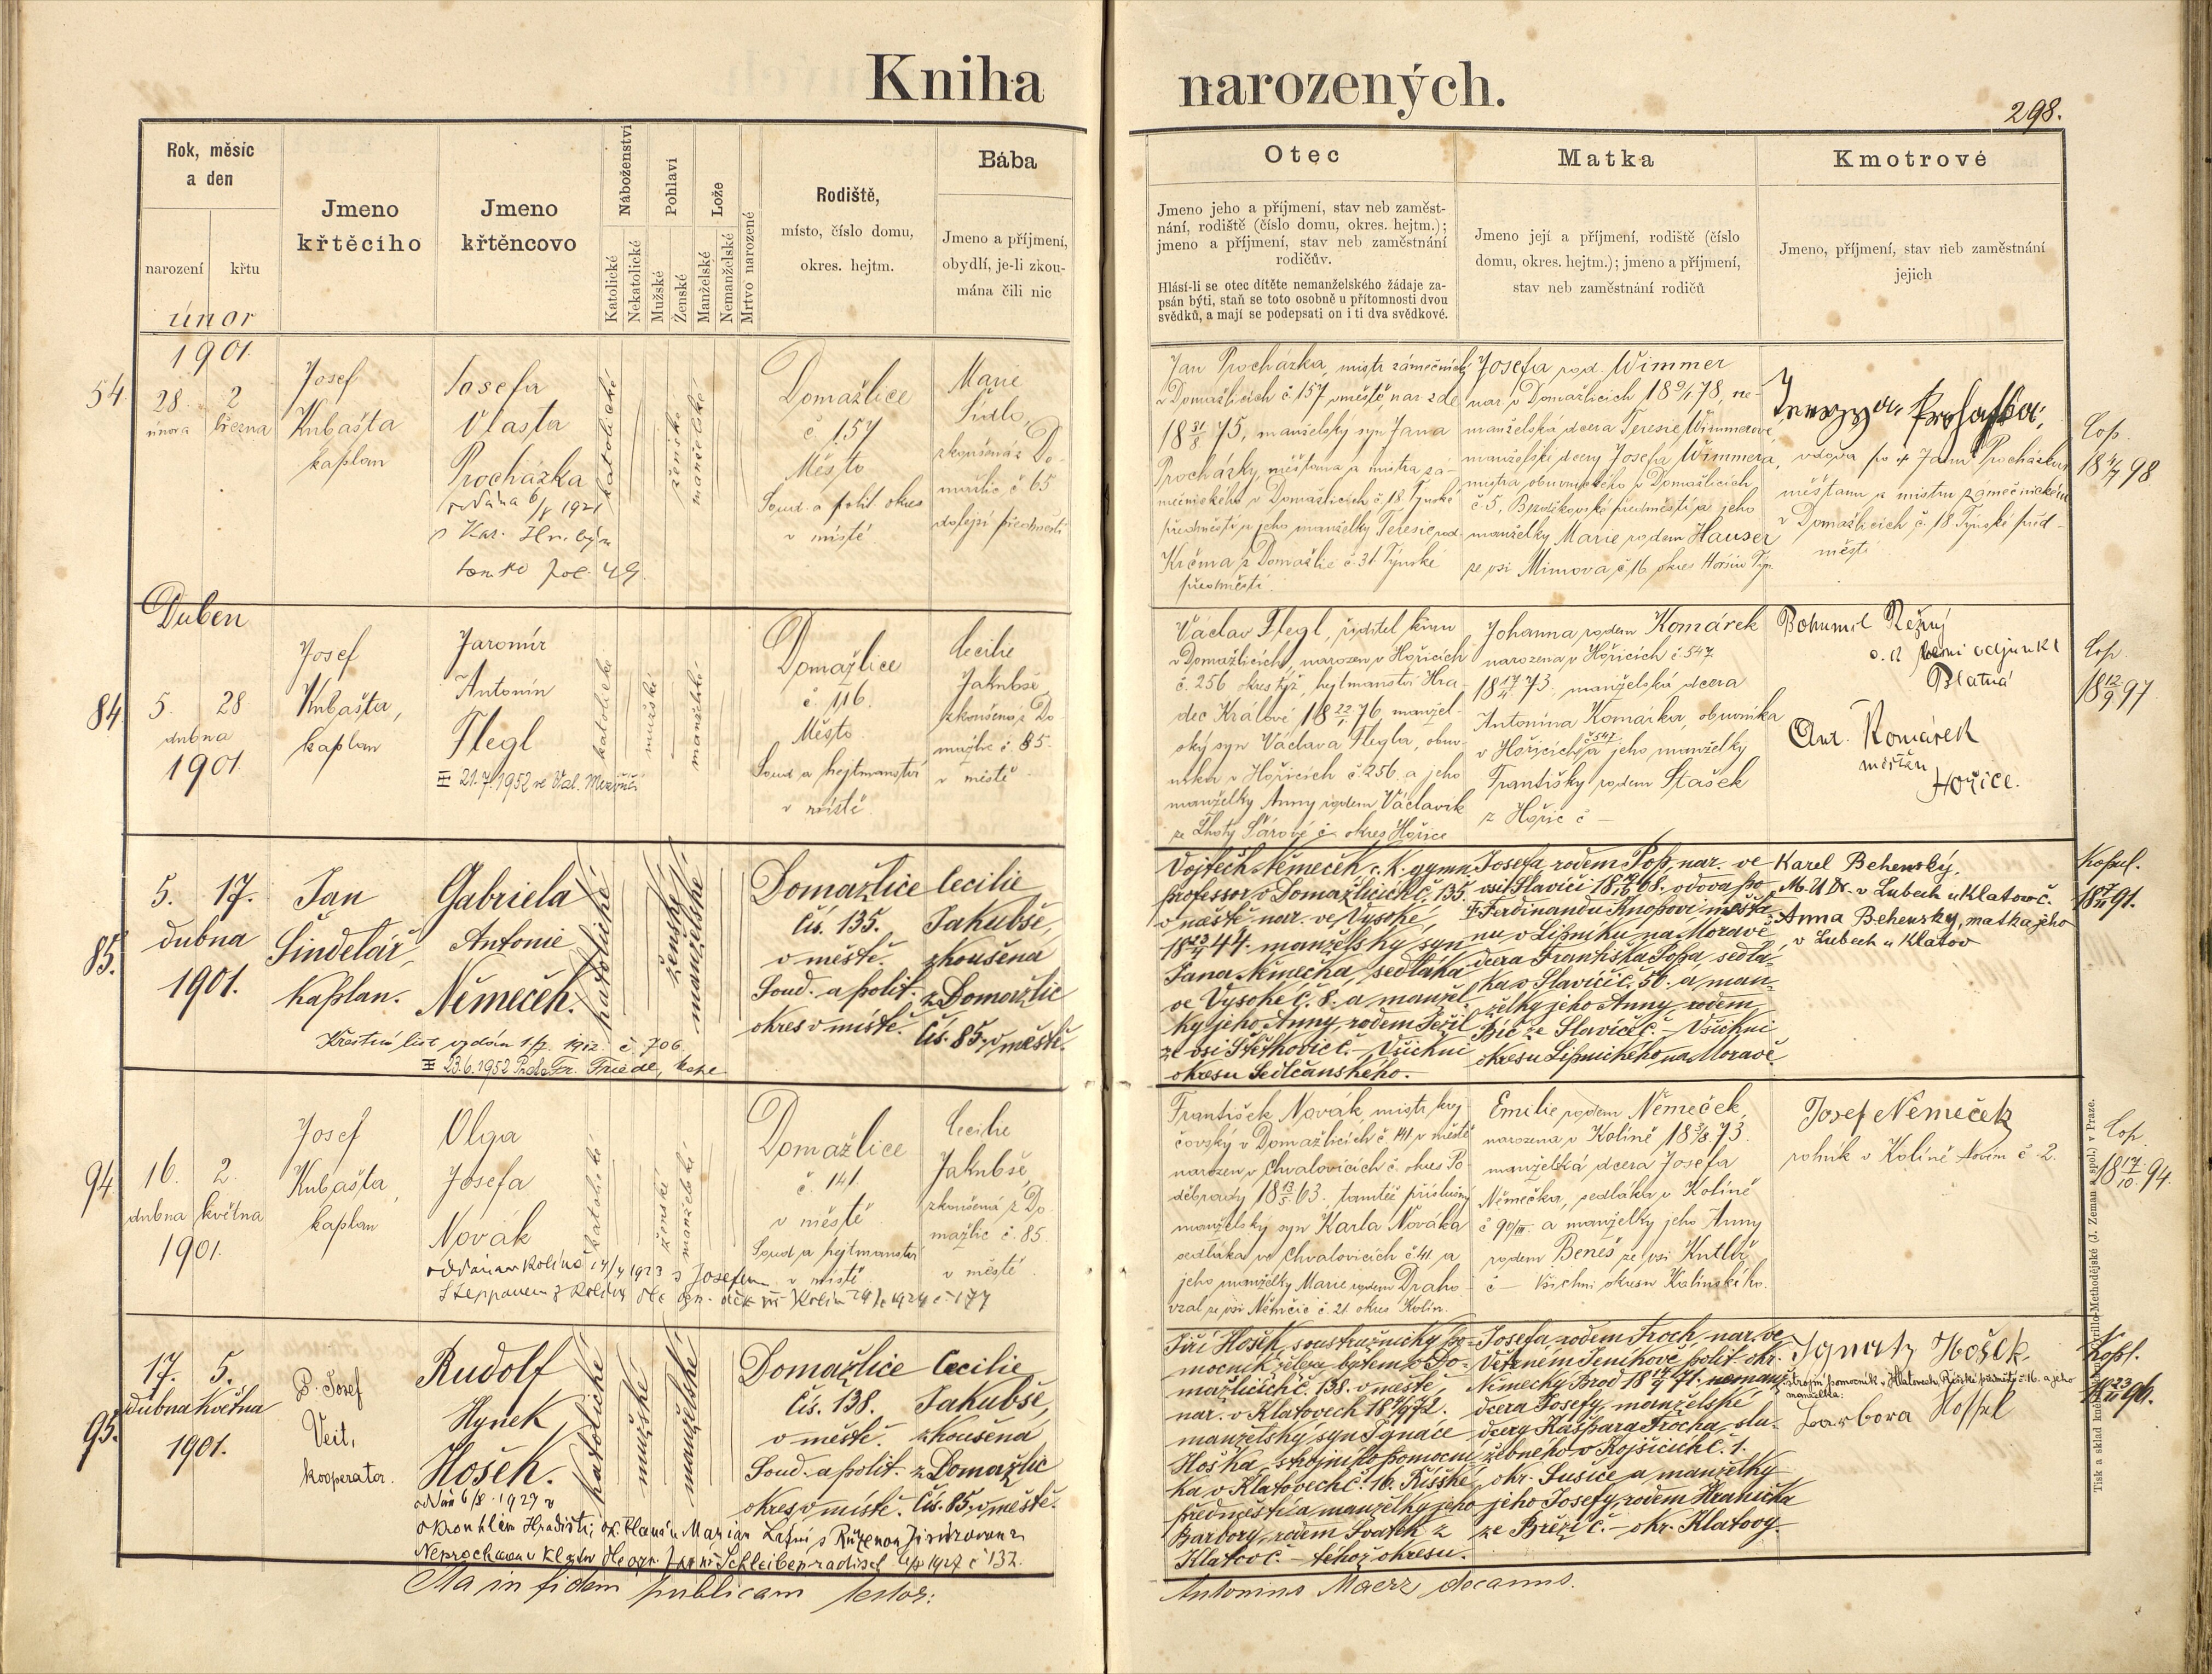 Kniha narozených.
298.
Rok, měsíc
a den
narození
křtu
Jmeno
křtěcího
Jmeno
křtěncovo
Náboženství
Katolické
Nekatolické
Pohlaví
Mužské
Ženské
Lože
Manželské
Nemanželské
Mrtvo narozené
Rodiště,
místo, číslo domu,
okres. hejtm.
Bába
Jmeno a příjmení,
obydlí, je-li zkou-
mána čili nic
Otec
Jmeno jeho a příjmení, stav neb zaměst-
nání, rodiště (číslo domu, okres. hejtm.);
jmeno a příjmení, stav neb zaměstnání
rodičův.
Hlásí-li se otec dítěte nemanželského žádaje za-
psán býti, staň se toto osobně u přítomnosti dvou
svědků, a mají se podepsati on i ti dva svědkové.
Matka
Jmeno její a příjmení, rodiště (číslo
domu, okres. hejtm.); jmeno a příjmení,
stav neb zaměstnání rodičů
Kmotrové
Jmeno, příjmení, stav neb zaměstnání
jejich
únor
1901.
54.
28. 2
února března
Josef
Kubašta
kaplan
Josefa
Vlasta
Procházka
katolické
ženské
manželské
Domažlice
č 157
Město
Soud. a polit okres
v místě
Marie
Sidlo,
zkoušená z Do-
mažlic č. 65
dolejší předměstí
Jan Procházka, mistr zámečnický
v Domažlicích č 157 v městě, nar zde
18 31/8 75, manželský syn Jana
Procházky, měšťana a mistra zá-
mečnického v Domažlicích č. 18 Týnské
předměstí a jeho manželky Teresie rod.
Krčma z Domažlic č. 31 Týnské
předměstí.
Josefa rod. Wimmer
nar. v Domažlicích 78, ne-
manželská dcera Teresie Wimmerové,
manželské dcery Josefa Wimmera,
mistra obuvnického v Domažlicích
č 5, předměstí a jeho
manželky Marie rodem Hauser
ze vsi Mimova, č 16 okres Horšův Týn
vdova po † Janu Procházkovi
měšťanu a mistru zámečnickém
v Domažlicích č. 18 Týnské před-
městí
Cop.
98
Duben
84
5. 28
dubna
1901
Josef
Kubašta,
kaplan
Jaromír
Antonín
Flegl
21.7.1952 ve Val. Meziříčí
katolické
mužské
manželské
Domažlice
č. 116.
Město
Soud a hejtmanství
v místě
Cecilie
Jakubše,
zkoušená z Do
mažlic č. 85.
v městě
Václav Flegl, ředitel kůru
v Domažlicích, narozen v Hořicích
č. 256 okres týž, hejtmanství Hra-
dec Králové 18 22/1 76 manžel-
ský syn Václava Flegla, obuv-
níka v Hořicích č. 256 a jeho
manželky Anny rodem Václavik
ze Lhoty Šárové č okres Hořice
Johanna rodem Komárek
narozena v Hořicích č. 547.
18 17/4 73. manželská dcera
Antonína Komárka, obuvníka
v Hořicích č 547 a jeho manželky
Františky rodem Stašek
z Hořic č —
Bohumil Režný
adjunkt
Blatná
Ant. Komárek
měšťan
Hořice.
Cop.
18 12/9 97.
85.
5. 17.
dubna
1901.
Jan
Šindelář,
kaplan.
Gabriela
Antonie
Němeček.
Křestní list vydán 1912. č. 706
23.6.1952 Praha
katolické
ženské
manželské
Domažlice
čís. 135.
v městě.
Soud. a polit.
okres v místě.
Cecilie
Jakubše,
zkoušena
z Domažlic
čís. 85. v městě.
Vojtěch Němeček, c. K. gymn.
professor v Domažlicích č. 135.
v městě nar. ve Vysoké,
44. manželský syn
Jana Němečka, sedláka
ve Vysoké č. 8. a manžel-
ky jeho Anny, rodem Ježil
ze vsi č. — Všichni
okresu Sedlčanského.
Josefa rodem Pop, nar. ve
vsi Slavíči 68. vdova po
† Ferdinandu Knopovi měšťa-
nu v Lipníku na Moravě
dcera Františka Popa, sedlá-
ka v Slavíči č. 50. a man-
želky jeho Anny, rodem
Bič ze Slavíče č. — Všichni
okresu Lipnického na Moravě.
Karel Behenský,
M. U. Dr. v Lubech u Klatov č.
Anna Behensky, matka jeho
v Lubech u Klatov
Kopul.
91.
94
16. 2.
dubna května
1901.
Josef
Kubašta,
kaplan
Olga
Josefa
Novák
katolické
ženské
manželské
Domažlice
č. 141.
v městě
Soud a hejtmanství
v místě
Cecilie
Jakubše,
zkoušená z Do
mažlic č. 85.
v městě
František Novák mistr krej
čovský v Domažlicích č 141 v městě
narozen v Chvalovicích č. okres Po
děbrady 18 13/5 63. tamtéž příslušný
manželský syn Karla Nováka
sedláka ve Chvalovicích č 41 a
jeho manželky Marie rodem Draho-
vzal ze vsi Němčic č. 21 okres Kolín.
Emilie rodem Němeček,
narozena v Kolíně 73.
manželská dcera Josefa
Němečka, sedláka v Kolíně
č a manželky jeho Anny
rodem Beneš ze vsi Kutlíř
č — Všichni okresu Kolínského.
Josef Němeček
rolník v Kolíně č 2.
Cop.
18 17/10 94.
95.
17. 5.
dubna května
1901.
P. Josef
Veit,
kooperator.
Rudolf
Hynek
Hošek.
katolické
mužské
manželské
Domažlice
čís. 138.
v městě.
Soud. a polit.
okres v místě.
Cecilie
Jakubše,
zkoušena
z Domažlic
čís. 85. v městě.
Jiří Hošek, soustružnický po-
mocník železa bytem v Do-
mažlicích č. 138. v městě,
nar. v Klatovech 72.
manželský syn Ignáce
Hoška, strojního pomocní-
ka v Klatovech č. 16. Říšské
předměstí a manželky jeho
Barbory, rodem Svatek z
Klatov č. — téhož okresu.
Josefa, rodem Troch, nar. ve
Větrném Jeníkově polit. okr.
Německý Brod 71.
dcera Josefy, manželské
dcery Kašpara Trocha, slu-
žebného v č. 1.
okr. Sušice a manželky
jeho Josefy, rodem Hranička
ze č. — okr. Klatovy.
Ignatz Hošek,
strojní pomocník v Klatovech, Říšské předměstí č 16. a jeho
manželka:
Barbora
Kopl.
18 23/11 96.
Ita in fidem publicam testor:
Antonius Maerz decanus.
Tisk a sklad kněhtiskárny Cyrillo-Methodějské (J. Zeman a spol.) v Praze.